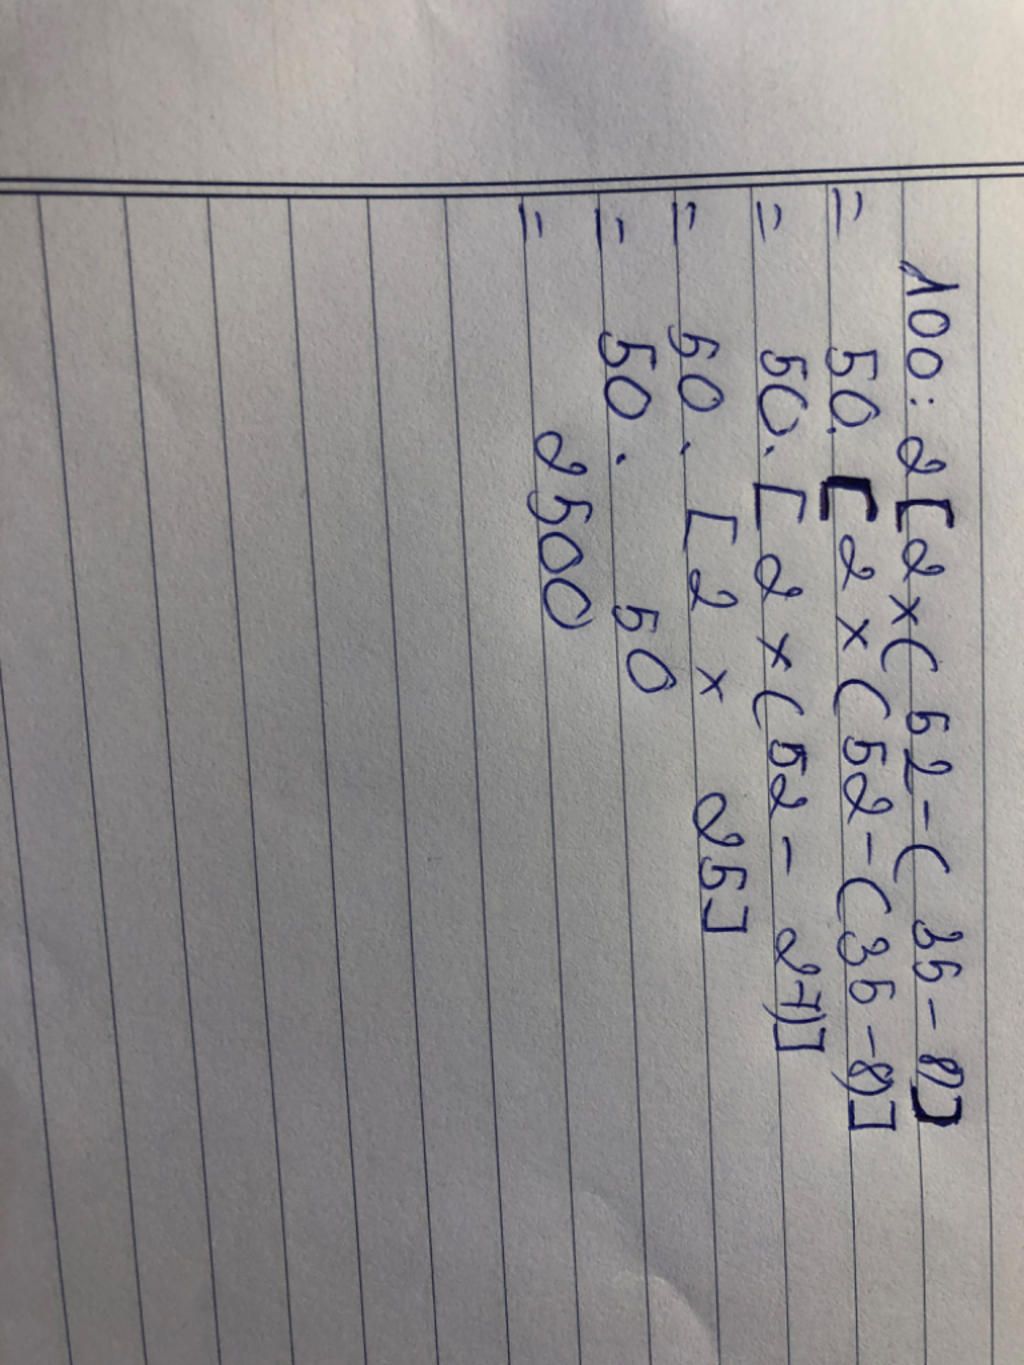 100: 2[2×(52-(35-8)]
= 50.[2×(52-(35-8)]
= 50.[2×(52-27)]
= 50.[2×25]
= 50.50
= 2500